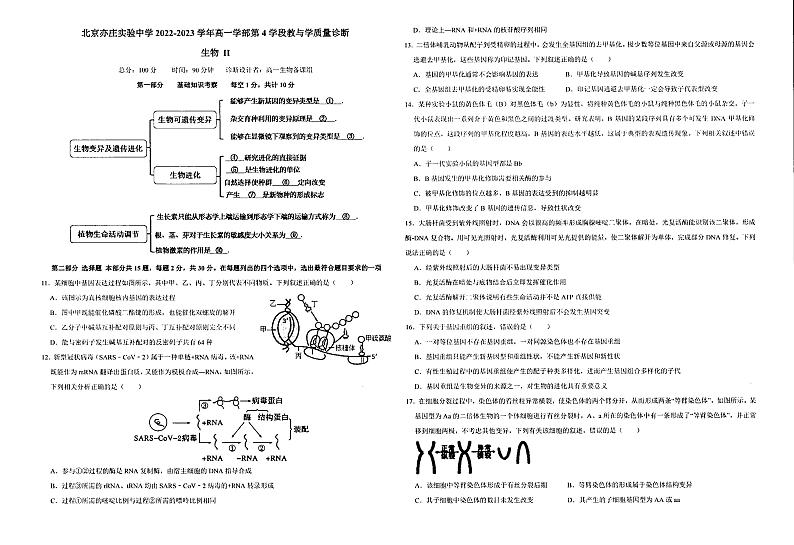 北京亦庄实验中学 2022-2023 学年高一学部第 4 学段教与学质量诊断
生物 II
总分：100 分 时间：90 分钟 诊断设计者：高一生物备课组
第一部分 基础知识考察 每空 1 分，共计 10 分
生物变异及遗传进化
生物可遗传变异
能够产生新基因的变异类型是 ① .
杂交育种利用的变异原理是 ② .
能够在显微镜下观察到的变异类型是 ③ .
生物进化
④ 研究进化的直接证据
⑤ 是生物进化的单位
自然选择使种群 ⑥ 定向改变
产生 ⑦ 是新物种的形成标志
植物生命活动调节
生长素只能从形态学上端运输到形态学下端的运输方式称为 ⑧ .
根、茎、芽对于生长素的敏感度大小关系为 ⑨ .
植物激素的作用是 ⑩ .
第二部分 选择题 本部分共 15 题，每题 2 分，共 30 分。在每题列出的四个选项中，选出最符合题目要求的一项
11．某细胞中基因表达过程如图所示，其中甲、乙、丙、丁分别代表不同物质。下列叙述正确的是（ ）
A．该图示为真核细胞核内基因的表达过程
B．图中甲既能催化磷酸二酯键的形成，也能催化双螺旋的解开
C．乙分子中碱基互补配对原则与丙、丁互补配对原则完全不同
D．能与密码子发生碱基互补配对的反密码子共有 64 种
乙
丁
甲
丙
核糖体
甲硫氨酸
5'
12．新型冠状病毒（SARS﹣CoV﹣2）属于一种单链+RNA 病毒。该+RNA
既能作为 mRNA 翻译出蛋白质，又能作为模板合成—RNA。如图所示，
下列相关分析正确的是（ ）
SARS-CoV-2病毒
+RNA
③
病毒蛋白
酶
结构蛋白
装配
①
②
-RNA
+RNA
A．参与①②过程的酶是 RNA 复制酶，由宿主细胞的 DNA 指导合成
B．过程③所需的 rRNA、tRNA 均由 SARS﹣CoV﹣2 病毒的+RNA 转录形成
C．过程①所需的嘧啶比例与过程②所需的嘌呤比例相同
D．理论上—RNA 和+RNA 的核苷酸序列相同
13．二倍体哺乳动物从配子到受精卵的过程中，会发生全基因组的去甲基化，极少数等位基因中来自父源或母源的基因会
逃避去甲基化，这些基因称为印记基因。下列叙述正确的是（ ）
A．基因的甲基化通常不会影响基因的表达
B．甲基化导致基因的碱基序列发生改变
C．全基因组去甲基化的受精卵易实现全能性
D．印记基因逃避去甲基化一定会导致子代表型改变
14．某种实验小鼠的黄色体毛（B）对黑色体毛（b）为显性。将纯种黄色体毛的小鼠与纯种黑色体毛的小鼠杂交，子一
代小鼠表现出一系列介于黄色和黑色之间的过渡类型。研究表明，B 基因的某段序列具有多个可发生 DNA 甲基化修
饰的位点，这段序列的甲基化程度越高，B 基因的表达水平越低，这属于典型的表观遗传现象。下列相关叙述中错误
的是（ ）
A．子一代实验小鼠的基因型都是 Bb
B．B 基因发生的甲基化修饰需要相关酶的参与
C．被甲基化修饰的位点越多，B 基因的表达受到的抑制越明显
D．甲基化修饰改变了 B 基因的遗传信息，导致性状改变
15．大肠杆菌受到紫外线照射时，DNA 会以很高的频率形成胸腺嘧啶二聚体。在暗处，光复活酶能识别该二聚体，形成
酶-DNA 复合物。用可见光照射时，光复活酶利用可见光提供的能量，使二聚体解开为单体，完成部分 DNA 修复。下列
说法正确的是（ ）
A．经紫外线照射后的大肠杆菌不易出现变异类型
B．光复活酶在暗处与底物结合后立即发挥催化作用
C．光复活酶解开二聚体说明有些生命活动并不是 ATP 直接供能
D．DNA 的修复机制使大肠杆菌经紫外线照射后不会发生基因突变
16．下列关于基因重组的叙述，错误的是（ ）
A．一对等位基因不存在基因重组，一对同源染色体也不存在基因重组
B．基因重组只能产生新基因型和重组性状，不能产生新基因和新性状
C．有性生殖过程中的基因重组使产生的配子种类多样化，进而产生基因组合多样化的子代
D．基因重组是生物变异的来源之一，对生物的进化具有重要意义
17．在细胞分裂过程中，染色体的着丝粒异常横裂，使染色体的两个臂分开，从而形成两条“等臂染色体”，如图所示。某
基因型为 Aa 的二倍体生物的一个体细胞进行有丝分裂时，A、a 所在的染色体中有一条形成了“等臂染色体”，并正常
移到细胞两极，不考虑其他变异。下列有关该细胞的叙述，错误的是（ ）
A．该细胞中等臂染色体形成于有丝分裂后期
B．等臂染色体的形成属于染色体结构变异
C．其子细胞中染色体的数目未发生改变
D．其产生的子细胞基因型为 AA 或 aa